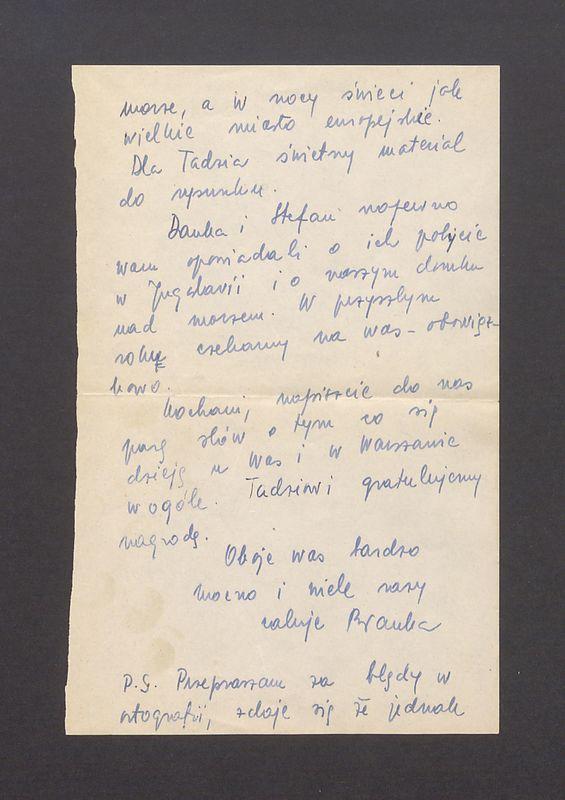 morze, a w nocy świeci jak
wielkie miasto europejskie.
Dla Tadzia świetny materiał
do rysunku.
Danka i Stefan napewno
wam opowiadali o ich pobycie
w Jugoslavii i o naszym domku
nad morzem. W przyszłym
roku czekamy na was – obowiąz-
kowo.
Kochani, napiszcie do nas
parę słów o tym co się
dzieję u was i w Warszawie
w ogóle. Tadziowi gratulujemy
nagrodę.
Oboje was bardzo
mocno i wiele razy
całuje Branka
P.S. Przepraszam za błędy w
ortografii, zdaje się że jednak